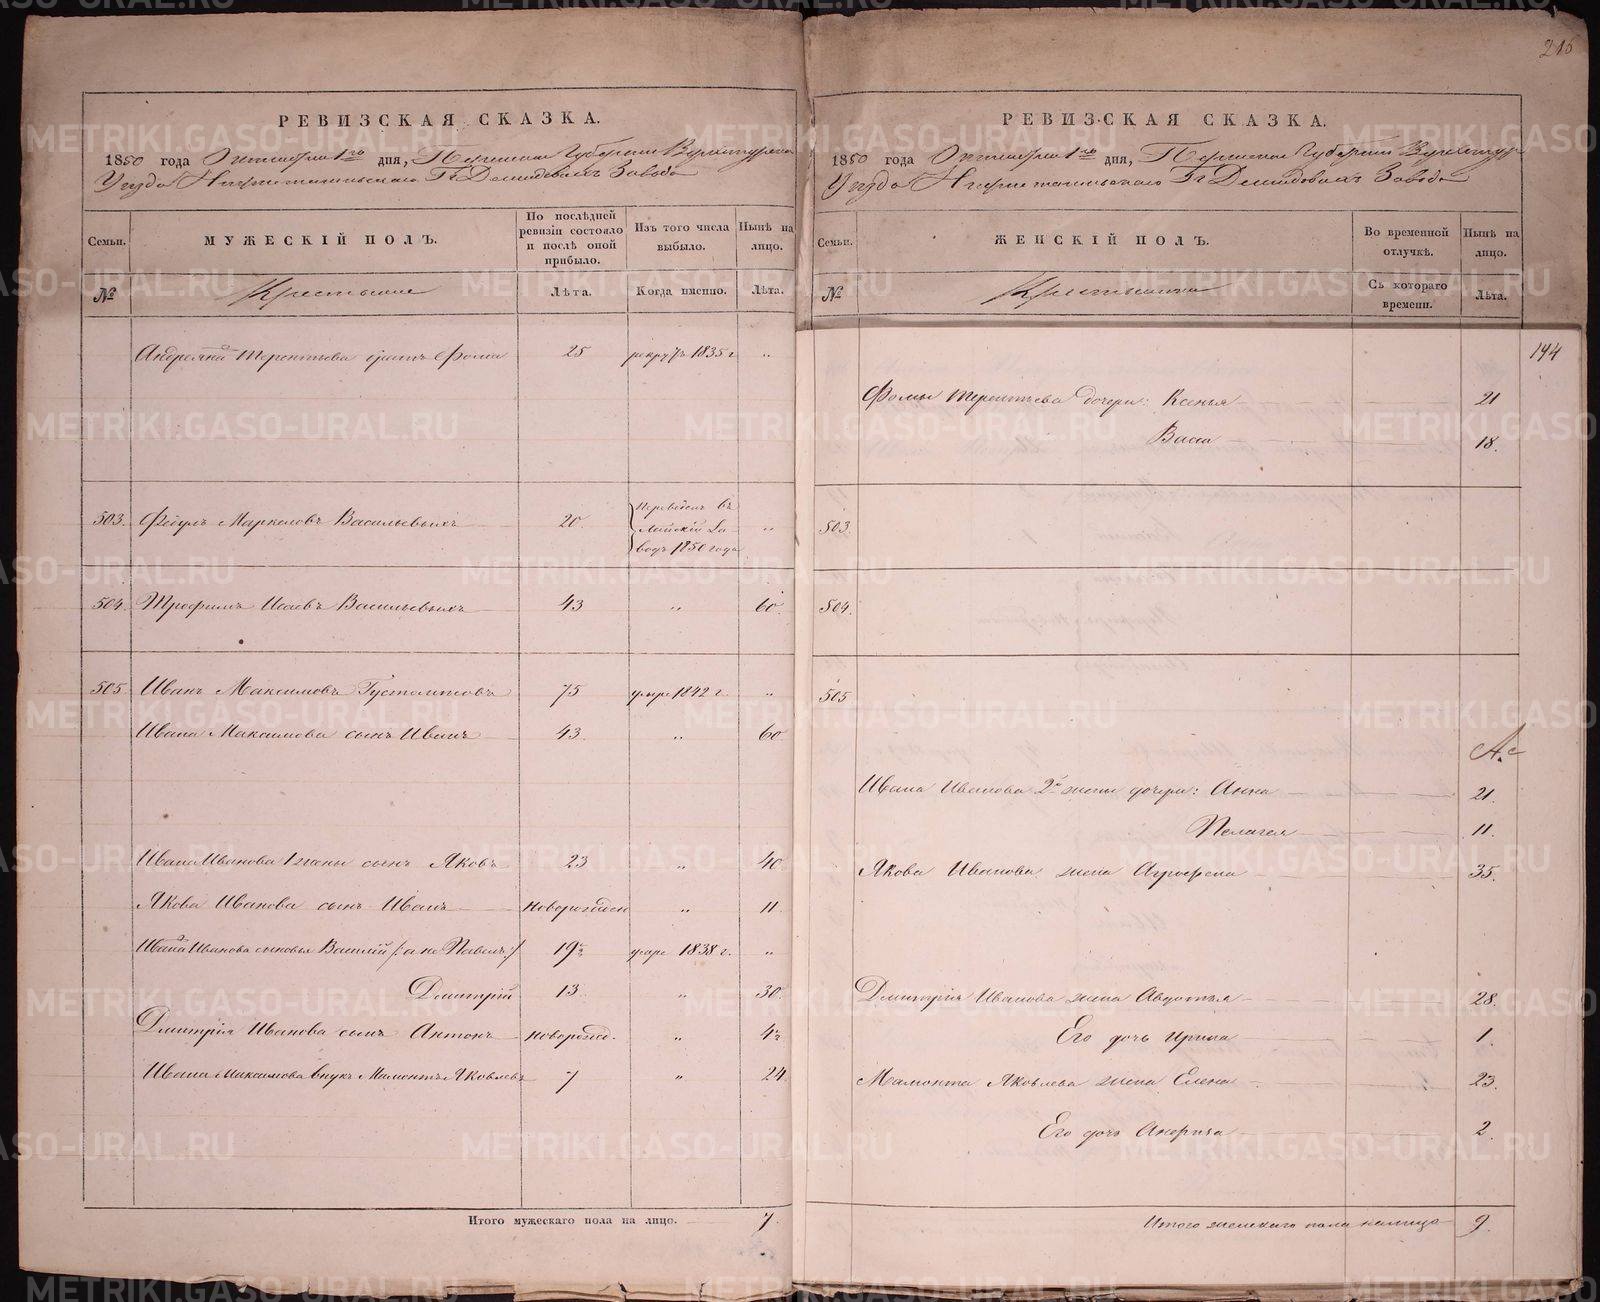 215
РЕВИЗСКАЯ СКАЗКА.
1850 года Октября 1го дня, Пермской Губернии Верхотурскаго
Уезда Нижнетагильскаго Гг Демидовыхъ Завода
Семьи.
МУЖЕСКІЙ ПОЛЪ.
По послѣдней ревизіи состояло и послѣ оной прибыло.
Изъ того числа выбыло.
Нынѣ на лицо.
№
Крестьяне
Лѣта.
Когда именно.
Лѣта.
Андреяна Терентьева братъ Фома 25 рекрутъ 1835 г "
503. Маркеловъ Васильевыхъ 20 Переведенъ въ
Лайскій За-
водъ 1850 года "
504. Трофимъ Исаевъ Васильевыхъ 43 " 60.
505. Иванъ Максимовъ 75 умре 1842 г. "
Ивана Максимова сынъ Иванъ 43. " 60
Ивана Иванова 1 жены сынъ Яковъ 23 " 40.
Якова Иванова сынъ Иванъ новорожден " 11
Ивана Иванова сыновья Василій /: а не Павелъ :/ 19½ умре 1838 г. "
Дмитрій 13. " 30.
Дмитрія Иванова сынъ Антонъ новорожд. " 4½
Ивана Максимова внукъ Мамонтъ Яковлевъ 7 " 24.
Итого мужескаго пола на лицо. 7.
РЕВИЗСКАЯ СКАЗКА.
1850 года Октября 1го дня, Пермской Губернии Верхотур
Уезда Нижнетагильскаго Гг Демидовыхъ Завода
Семьи.
ЖЕНСКІЙ ПОЛЪ.
Во временной отлучкѣ.
Нынѣ на лицо.
№
Крестьянки
Съ котораго времени.
Лѣта.
144
Фомы Терентьева дочери: Ксенья 21
Васса 18.
503.
504.
505
Ивана Иванова 2й жены дочери: Анна 21.
Пелагея 11.
Якова Иванова жена Агрофена 35.
Дмитрія Иванова жена Авдотья 28.
Его дочь Ирина 1.
Мамонта Яковлева жена Елена 23.
Его дочь 2.
Итого женскаго пола налицо 9.
METRIKI.GASO-URAL.RU